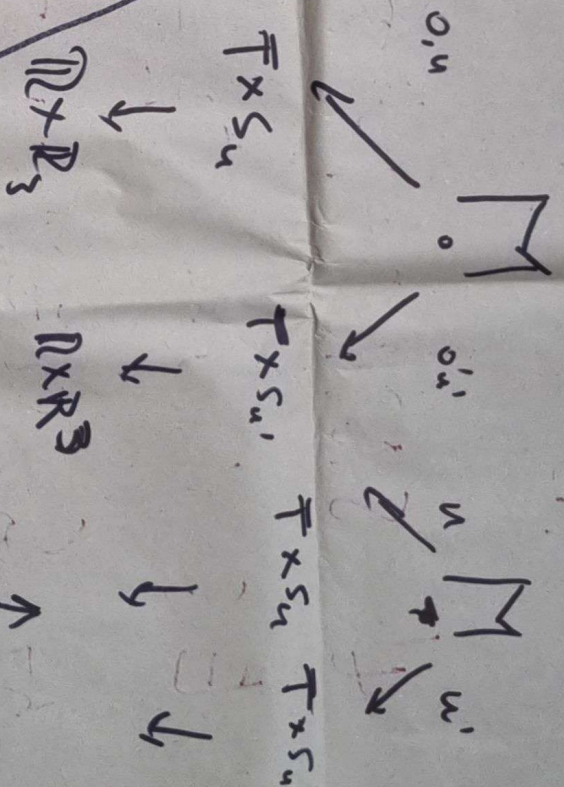 M M
o,u o',u' u u'
T×Sᵤ T×Sᵤ' T×Sᵤ T×Sᵤ
ℝ×ℝ₃ ℝ×ℝ³